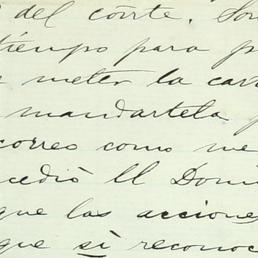 del córte. Son
tiempo para p
meter la car
mandartela p
correo como me
cedió el Domi
que las accione
que si reconoc